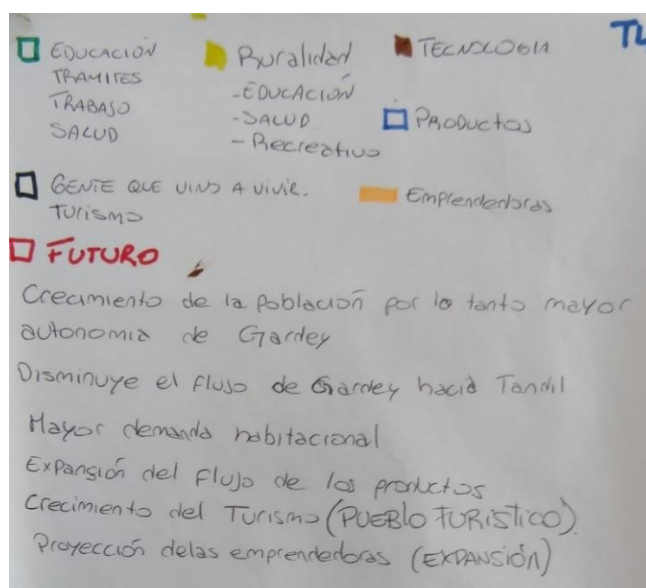 TU
EDUCACIÓN
TRAMITES
TRABAJO
SALUD
Ruralidad
-EDUCACIÓN
-SALUD
- Recreativo
TECNOLOGIA
PRODUCTOS
GENTE QUE VINO A VIVIR.
TURISMO
Emprendedoras
FUTURO
Crecimiento de la población por lo tanto mayor
autonomia de Gardey
Disminuye el flujo de Gardey hacia Tandil
Mayor demanda habitacional
Expansión del flujo de los productos
Crecimiento del Turismo (PUEBLO TURISTICO).
Proyección delas emprendedoras (EXPANSIÓN)